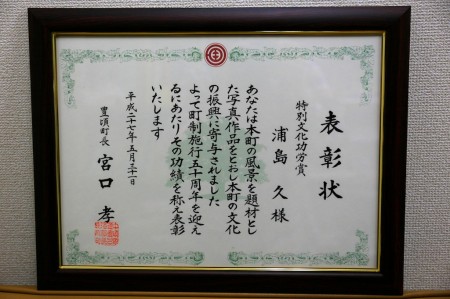 表彰状
特別文化功労賞
浦島久様
あなたは本町の風景を題材とし
た写真作品をとおし本町の文化
の振興に寄与されました
よって町制施行五十周年を迎え
るにあたりその功績を称え表彰
いたします
平成二十七年五月三十一日
豊頃町長 宮口孝